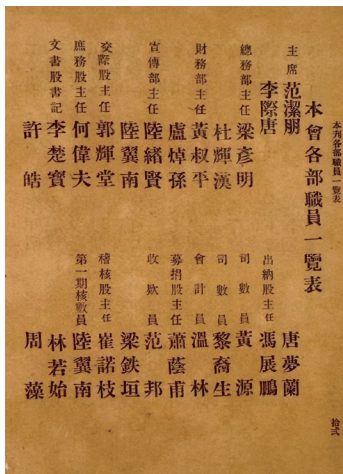 本刊各部職員一覽表
本會各部職員一覽表
主席 范潔朋
李際唐
總務部主任 梁彥明
杜輝漢
財務部主任 黃叔平
盧焯孫
宣傳部主任 陸緒賢
陸翼南
交際股主任 郭輝堂
庶務股主任 何偉夫
文書股書記 李楚寶
許皓
唐夢蘭
出納股主任 馮展鵬
司數員 黃源
司數員 黎裔生
會計員 溫林
募捐股主任 蕭蔭甫
收欵員 范邦
梁鉄垣
稽核股主任 崔諾枝
第一期核數員 陸翼南
林若始
周藻
拾弍